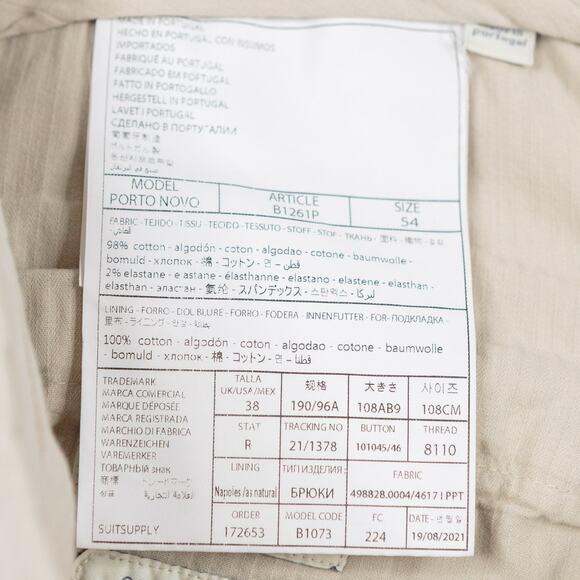 MADE IN PORTUGAL
HECHO EN PORTUGAL CON INSUMOS
IMPORTADOS
FABRIQUÉ AU PORTUGAL
FABRICADO EM PORTUGAL
FATTO IN PORTOGALLO
HERGESTELL IN PORTUGAL
LAVET I PORTUGAL
СДЕЛАНО В ПОРТУГАЛИИ
葡萄牙制造
ポルトガル製
portugal
MODEL ARTICLE SIZE
PORTO NOVO B1261P 54
FABRIC - TEJIDO - TISSU - TECIDO - TESSUTO - STOFF - STOF - ТКАНЬ - 面料 - 織物 -
98% cotton - algodón - coton - algodao - cotone - baumwolle -
bomuld - хлопок - 棉 - コットン - 면 - قطن
2% elastane - elastane - élasthanne - elastano - elastene - elasthan -
elasthan - эластан - 氨纶 - スパンデックス - 스판덱스 - ليكرا
LINING - FORRO - DOLBLURE - FORRO - FODERA - INNENFUTTER - FOR- ПОДКЛАДКА -
里布 - ライニング - 안감 -
100% cotton - algodón - coton - algodao - cotone - baumwolle
- bomuld - хлопок - 棉 - コットン - 면 - قطن
TRADEMARK
MARCA COMERCIAL
MARQUE DÉPOSÉE
MARCA REGISTRADA
MARCHIO DI FABRICA
WARENZEICHEN
VAREMERKER
ТОВАРНЫЙ знак
商標 トレードマーク
SUITSUPPLY
TALLA UK/USA/MEX 规格 大きさ 사이즈
38 190/96A 108AB9 108CM
STAT TRACKING NO BUTTON THREAD
R 21/1378 101045/46 8110
LINING ТИП ИЗДЕЛИЯ : FABRIC
Napoles /as natural БРЮКИ 498828.0004/4617 I PPT
ORDER MODEL CODE FC DATE - 년 월 일
172653 B1073 224 19/08/2021